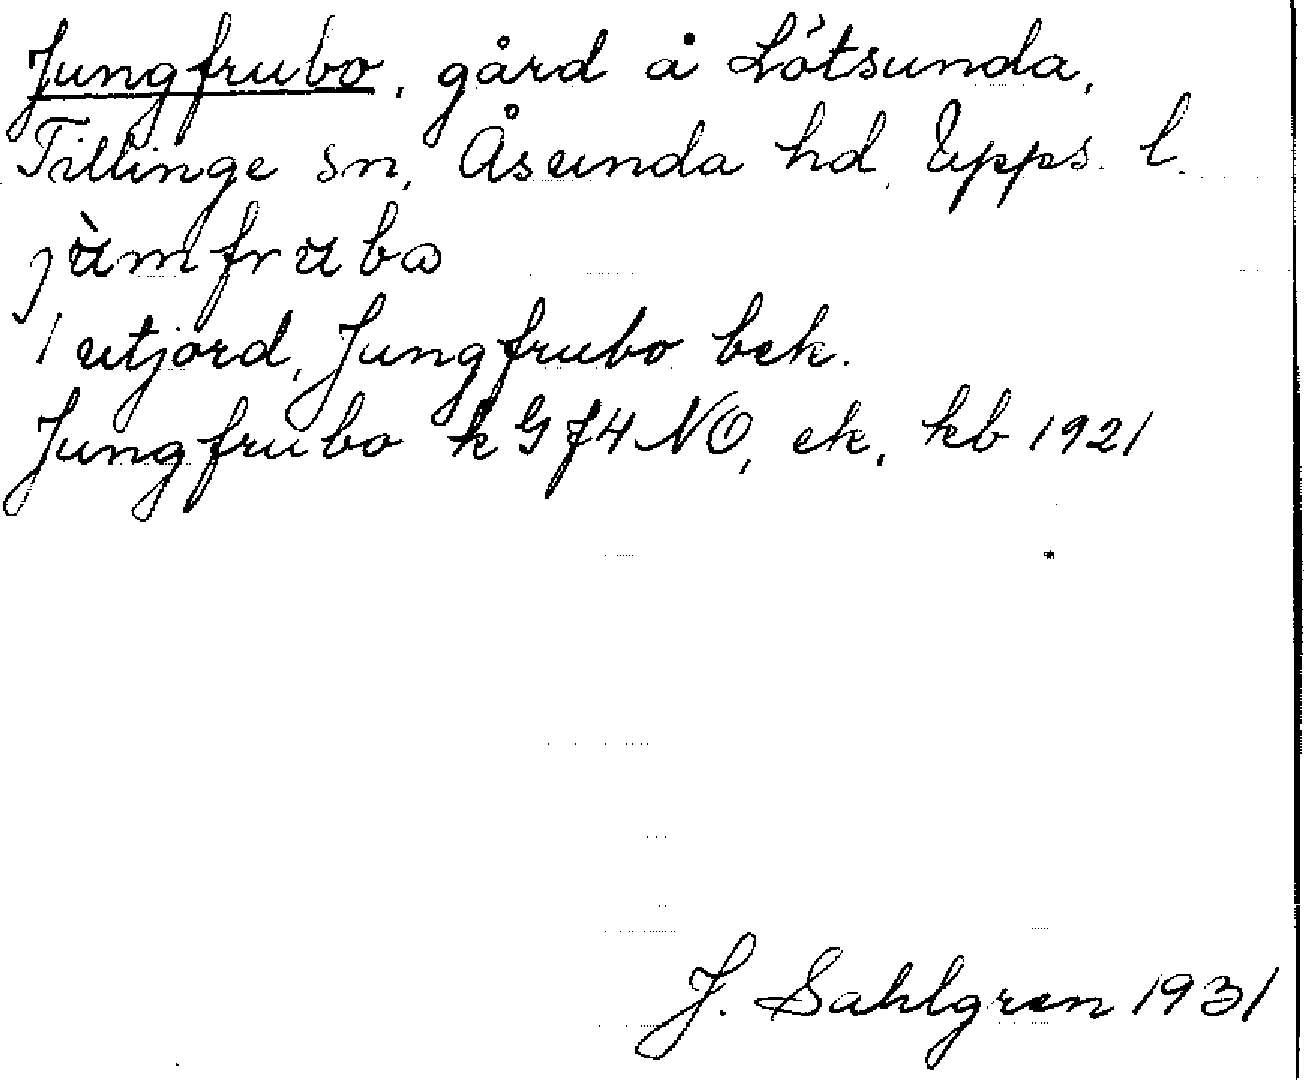 Jungfrubo, gård å Lötsunda,
Tillinge sn, Åsunda hd, Upps. l.
jùmfrubω
1 utjord, Jungfrubo bek.
Jungfrubo k G f 4 NO, ek, kb 1921
J. Sahlgren 1931